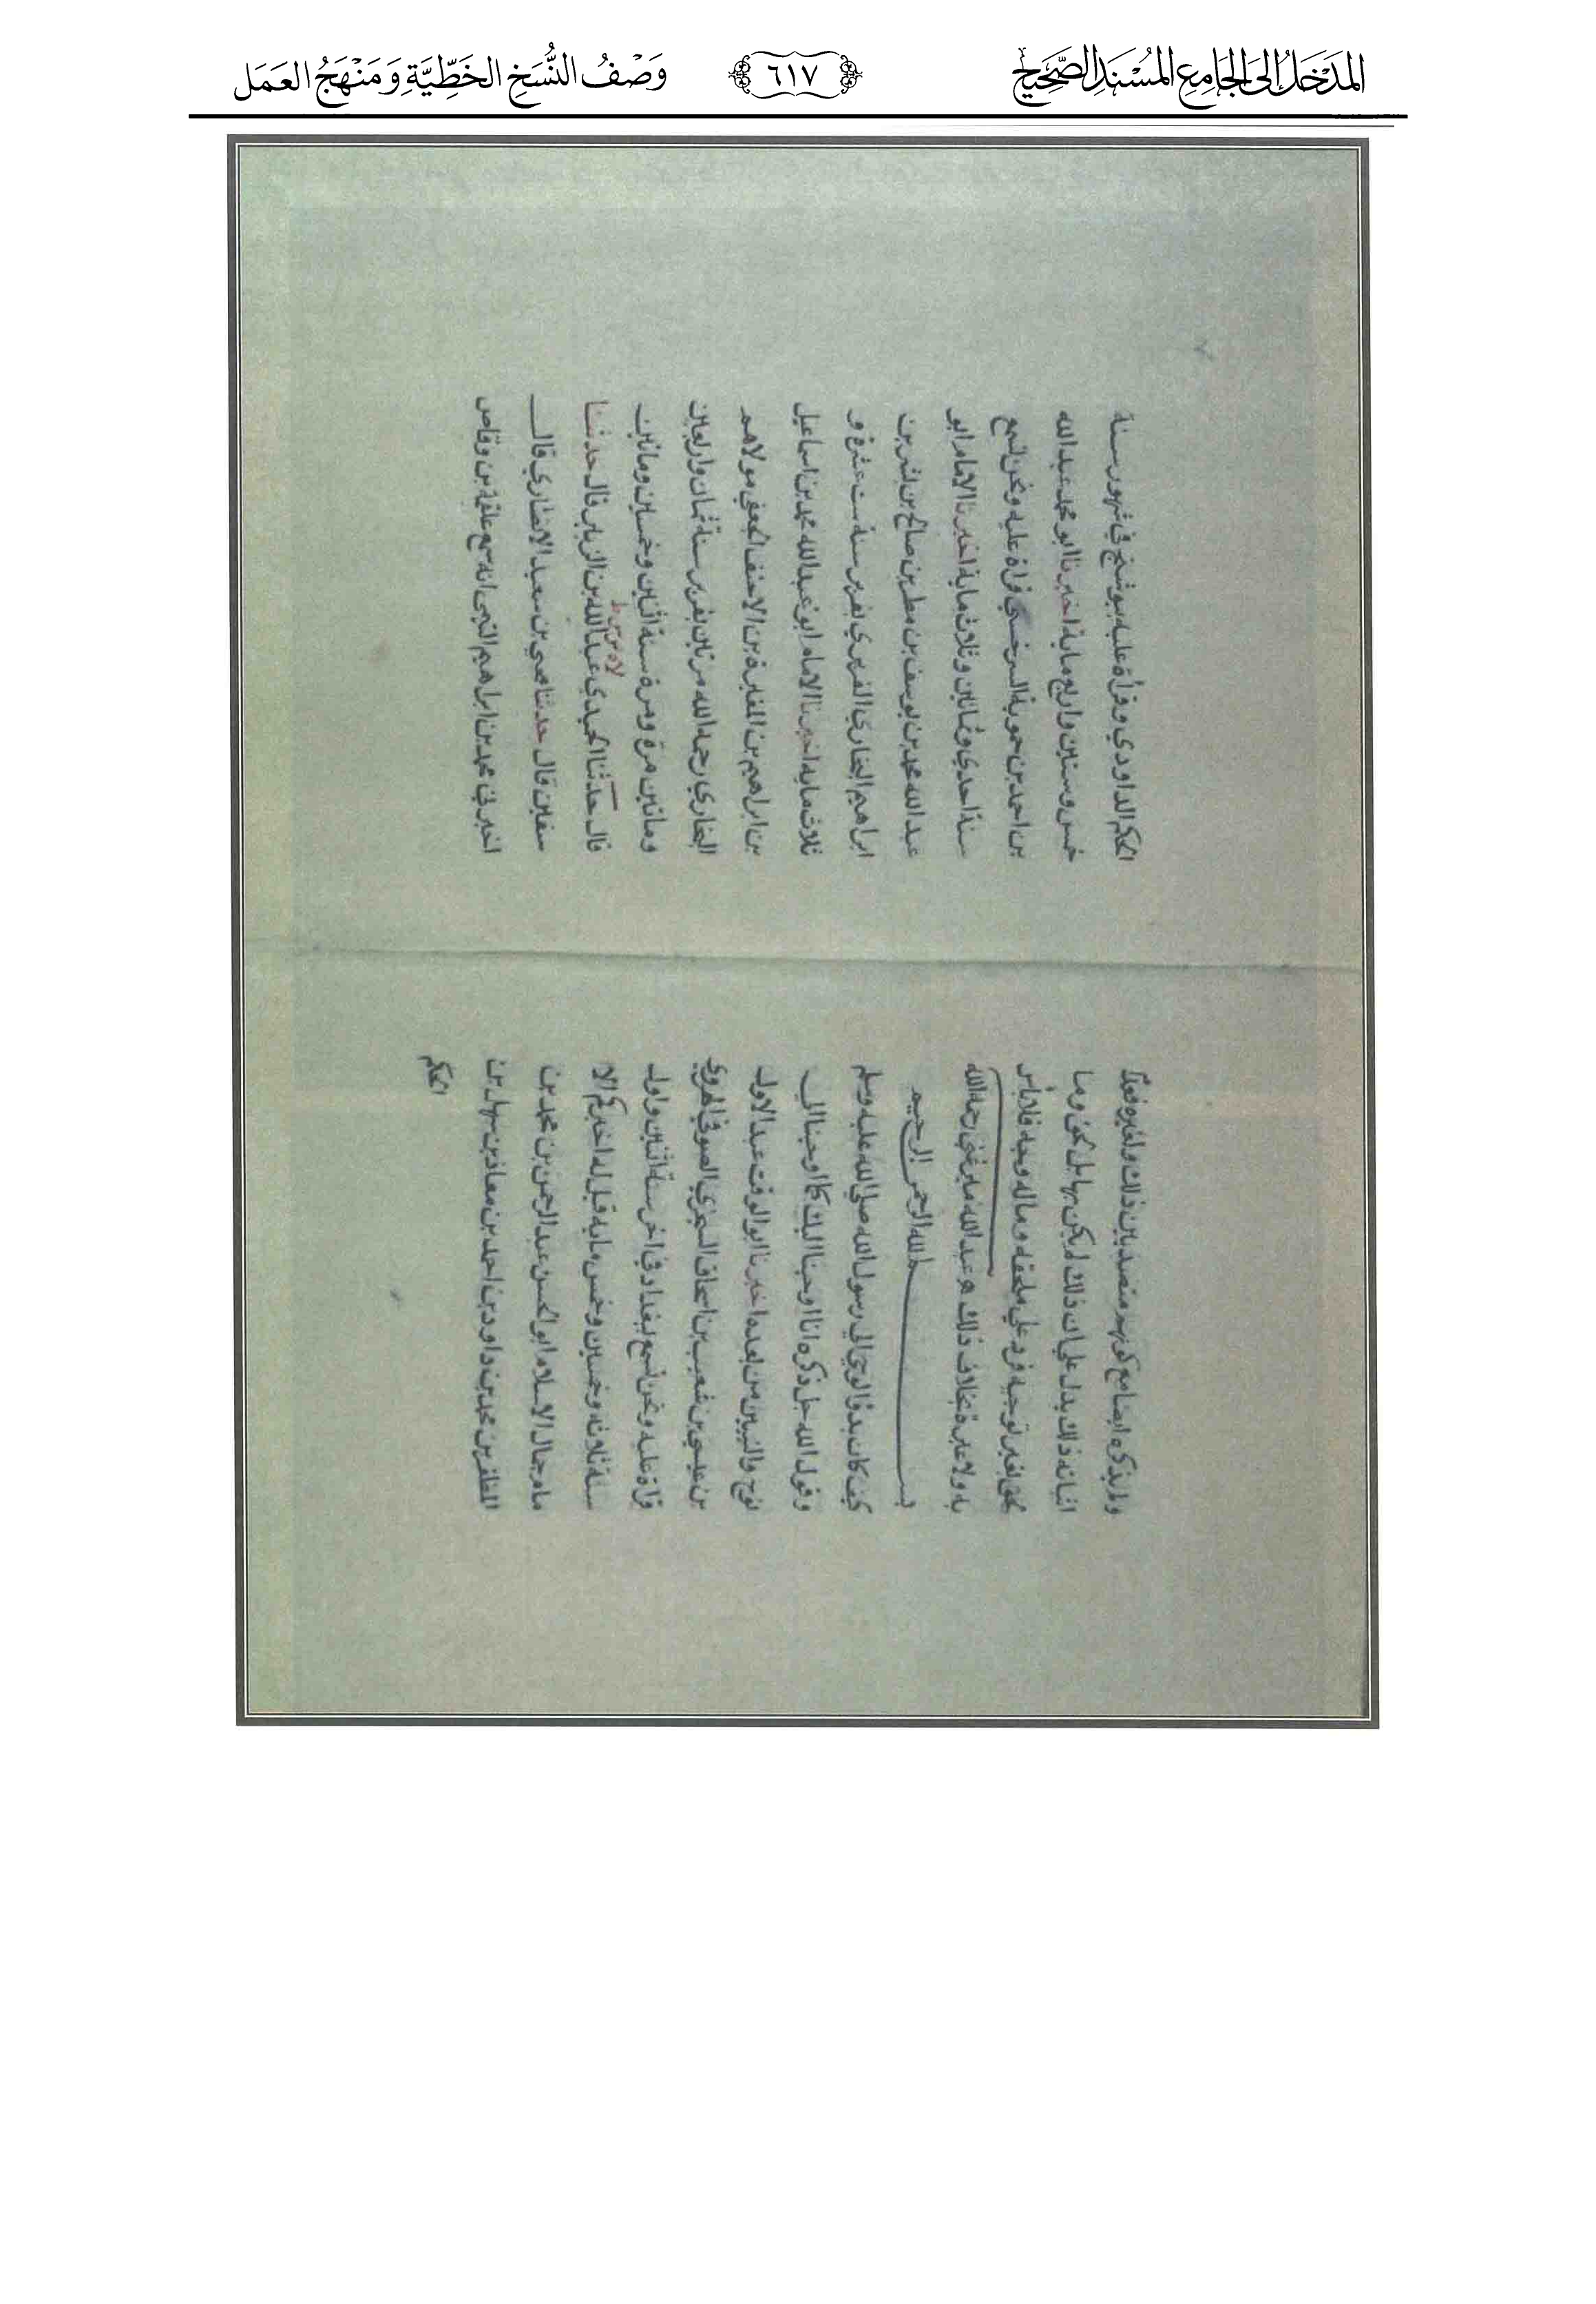 المدخل إلى الجامع المسند الصحيح
٦١٧
وَصْفُ النُّسَخِ الخَطِّيَّةِ وَمَنْهَجُ العَمَل
ولم يذكره ايضا مع كونهم متصدين ذلك ولغيره فعدم
اثباته ذلك يدل علي ان ذلك لم يكن بها بل لحق وما
لحق بغير توجيه فرد علي ملحقه وماله وجه فلا باس
به ولا عبرة بخلاف ذلك هو عبد الله ميرغني رحمه الله
بسم الله الرحمن الرحيم
كيف كان بدؤ الوحي الي رسول الله صلي الله عليه وسلم
وقول الله جل ذكره انا اوحينا اليك كما اوحينا الي
نوح والنبيين من بعده اخبرنا ابو الوقت عبد الاول
بن عيسي بن شعيب بن اسحاق السجزي الصوفي الهروي
قراة عليه ونحن نسمع ببغداد في اخر سنة اثنين واول
سنة ثلاثه وخمسين وخمس مايه قيل له اخبركم الا
مام جمال الاسلام ابو الحسن عبد الرحمن بن محمد بن
المظفر بن محمد بن داود بن احمد بن معاذ بن سهل بن
الحكم
الحكم الداودي وقرأة عليه ببوشنج في شهور سنة
خمس وستين واربع ماية اخبرنا ابو محمد عبد الله
بن احمد بن حموية السرخسي قراة عليه ونحن نسمع
سنة احدي وثمانين وثلاث ماية اخبرنا الامام ابو
عبد الله محمد بن يوسف بن مطر بن صالح بن بشر بن
ابراهيم البخاري الفربري بفربر سنة ست عشرة و
ثلاث مايه اخبرنا الامام ابو عبد الله محمد بن اسماعيل
بن ابراهيم بن المغيرة بن الاحنف الجعفي مولاهم
البخاري رحمه الله مرتين بفربر سنة ثمان واربعين
ومائتين مرة ومرة سنة اثنين وخمسين ومائتين
قال حدثنا الحميدي عبد الله بن الزبير قال حدثنا
سفين قال حدثنا يحيي بن سعيد الانصاري قال
اخبرني محمد بن ابراهيم التيمي انه سمع علقمة بن وقاص